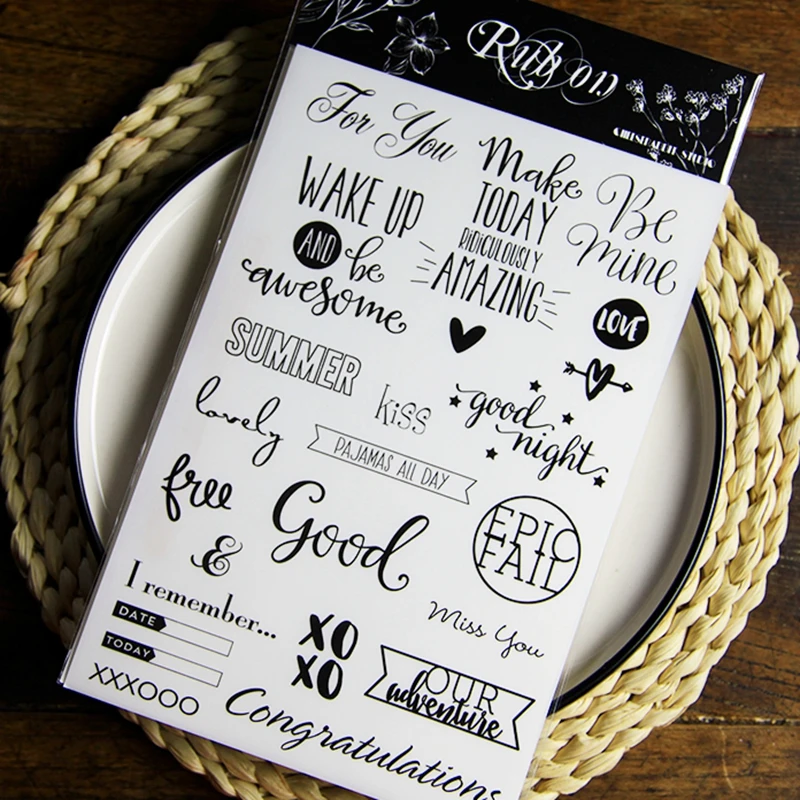 Rub on
For You
Make
TODAY
RIDICULOUSLY
AMAZING
Be
Mine
WAKE UP
AND be
awesome
LOVE
SUMMER
kiss
good
night
lovely
PAJAMAS ALL DAY
free
Good
EPIC
FAIL
&
I remember...
Miss You
DATE
TODAY
XO
XO
OUR
adventure
XXXOOO
Congratulations